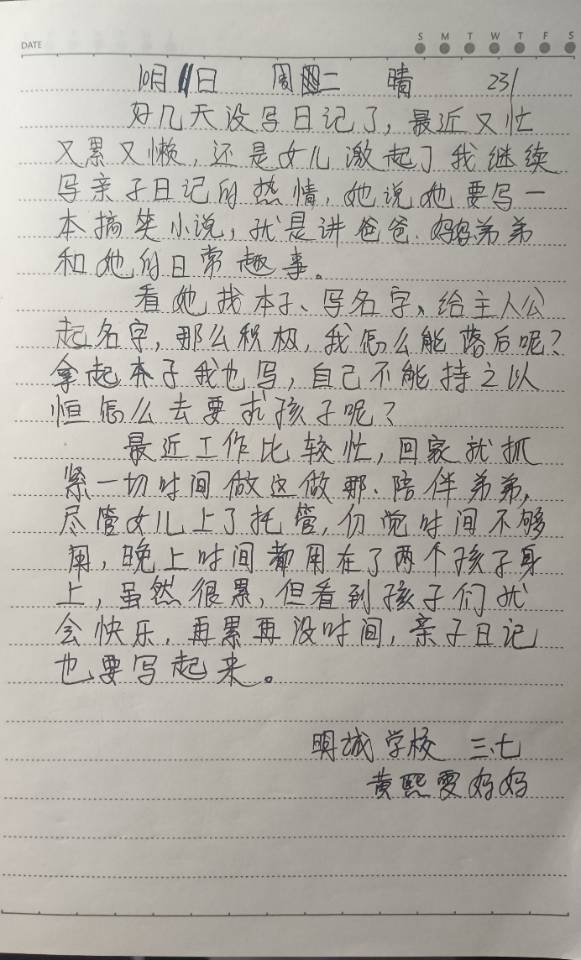 DATE
S M T W T F S
10月11日 周二 晴 23/
好几天没写日记了，最近又忙
又累又懒，还是女儿激起了我继续
写亲子日记的热情，她说她要写一
本搞笑小说，就是讲爸爸、妈妈弟弟
和她的日常趣事。
看她找本子、写名字、给主人公
起名字，那么积极，我怎么能落后呢？
拿起本子我也写，自己不能持之以
恒怎么去要求孩子呢？
最近工作比较忙，回家就抓
紧一切时间做这做那、陪伴弟弟，
尽管女儿上了托管，仍觉时间不够
用，晚上时间都用在了两个孩子身
上，虽然很累，但看到孩子们就
会快乐，再累再没时间，亲子日记
也要写起来。
明城学校 三、七
黄熙雯妈妈